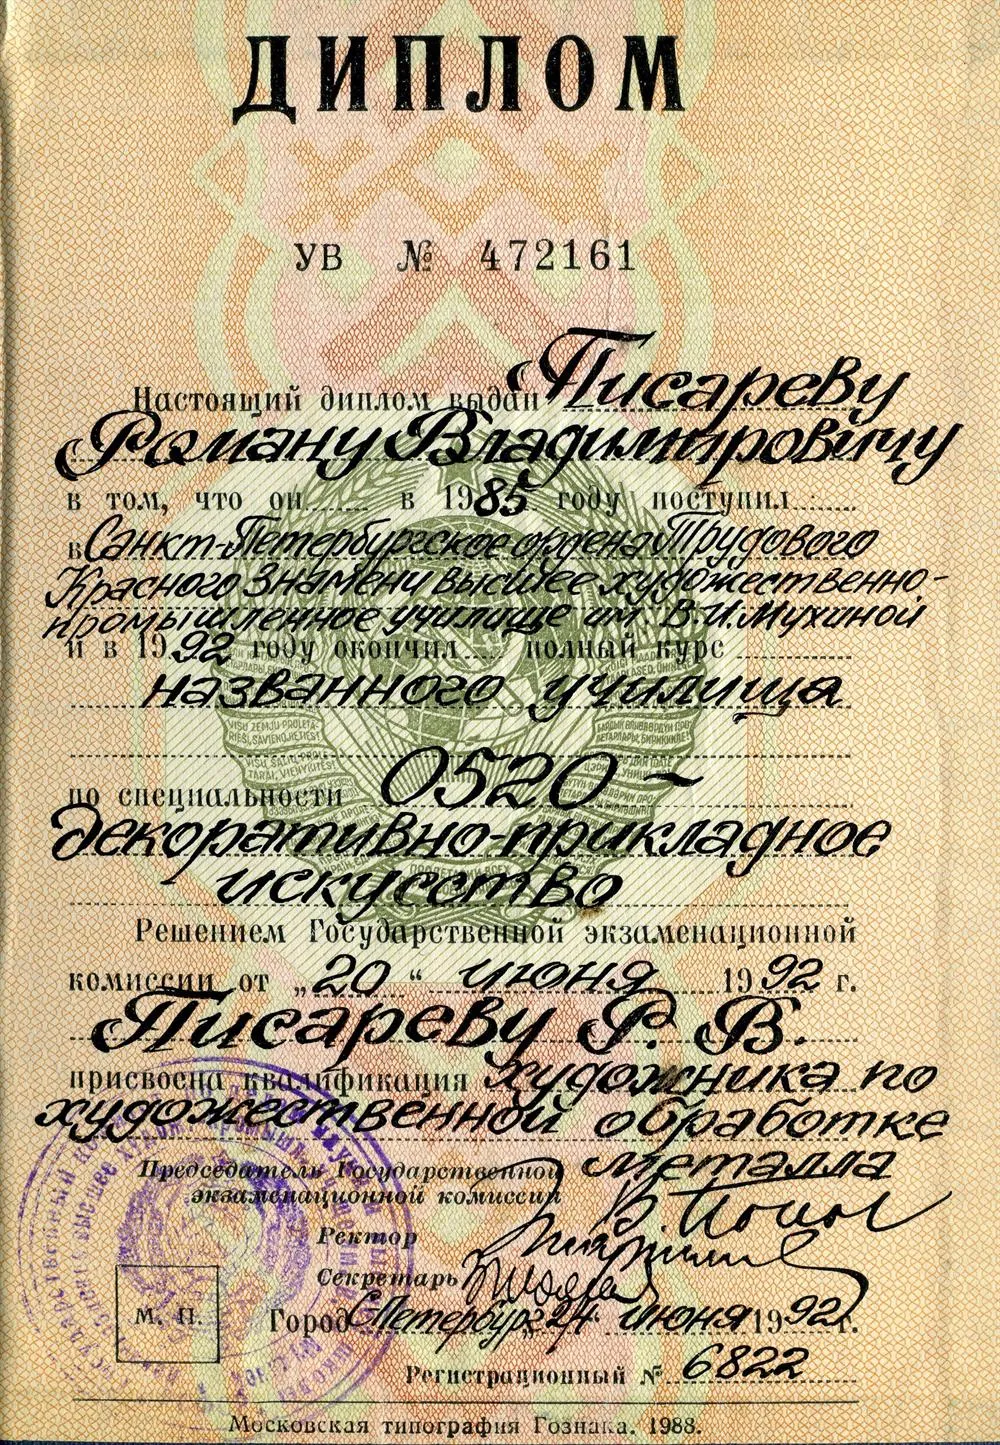 ДИПЛОМ
УВ № 472161
Настоящий диплом выдан Писареву
Роману Владимировичу
в том, что он в 1985 году поступил
в Санкт-Петербургское ордена Трудового
Красного Знамени высшее художественно-
промышленное училище им. В.И.Мухиной
и в 1992 году окончил полный курс
названного училища
по специальности 0520 -
декоративно-прикладное
искусство
Решением Государственной экзаменационной
комиссии от „20“ июня 1992 г.
Писареву Р. В.
присвоена квалификация художника по
художественной обработке
металла
Председатель Государственной
экзаменационной комиссии
Ректор
Секретарь
М. П.
Город С-Петербург „24“ июня 1992 г.
Регистрационный № 6822
Московская типография Гознака. 1988.